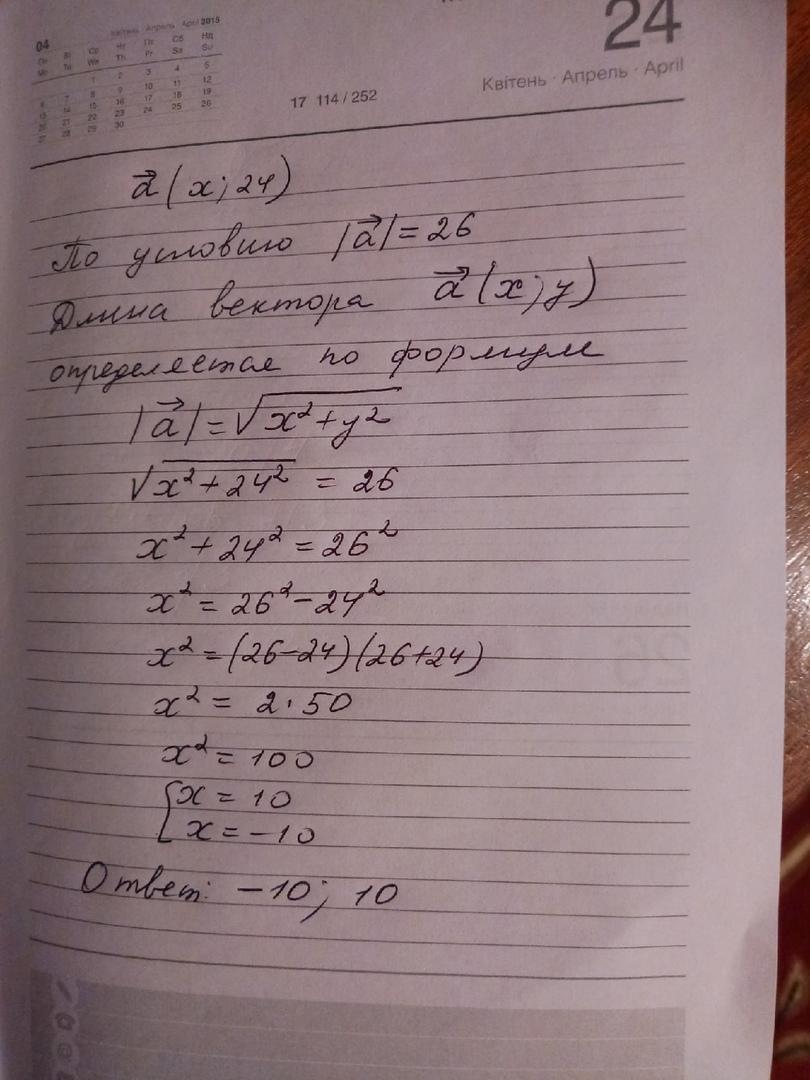 24
04 Квітень Апрель April 2015
Пн Вт Ср Чт Пт Сб Нд
Mo Tu We Th Fr Sa Su
1 2 3 4 5
6 7 8 9 10 11 12
13 14 15 16 17 18 19
20 21 22 23 24 25 26
27 28 29 30
17 114 / 252
Квітень · Апрель · April
a⃗ (x; 24)
По условию |a⃗| = 26
Длина вектора a⃗ (x; y)
определяется по формуле
|a⃗| = √(x² + y²)
√(x² + 24²) = 26
x² + 24² = 26²
x² = 26² − 24²
x² = (26−24)(26+24)
x² = 2·50
x² = 100
[x = 10
x = −10
Ответ: −10; 10